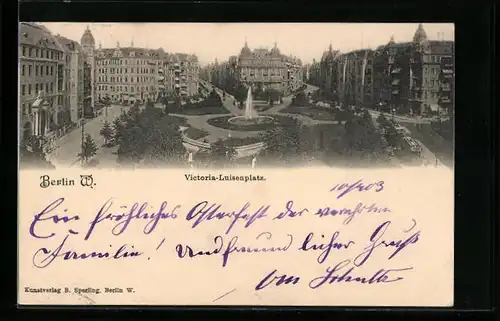 Berlin W.
Victoria-Luisenplatz.
10/4 03
Ein fröhliches Osterfest der verehrten
Familie! Und freundlicher Gruß
von Schulte
Kunstverlag B. Sperling, Berlin W.